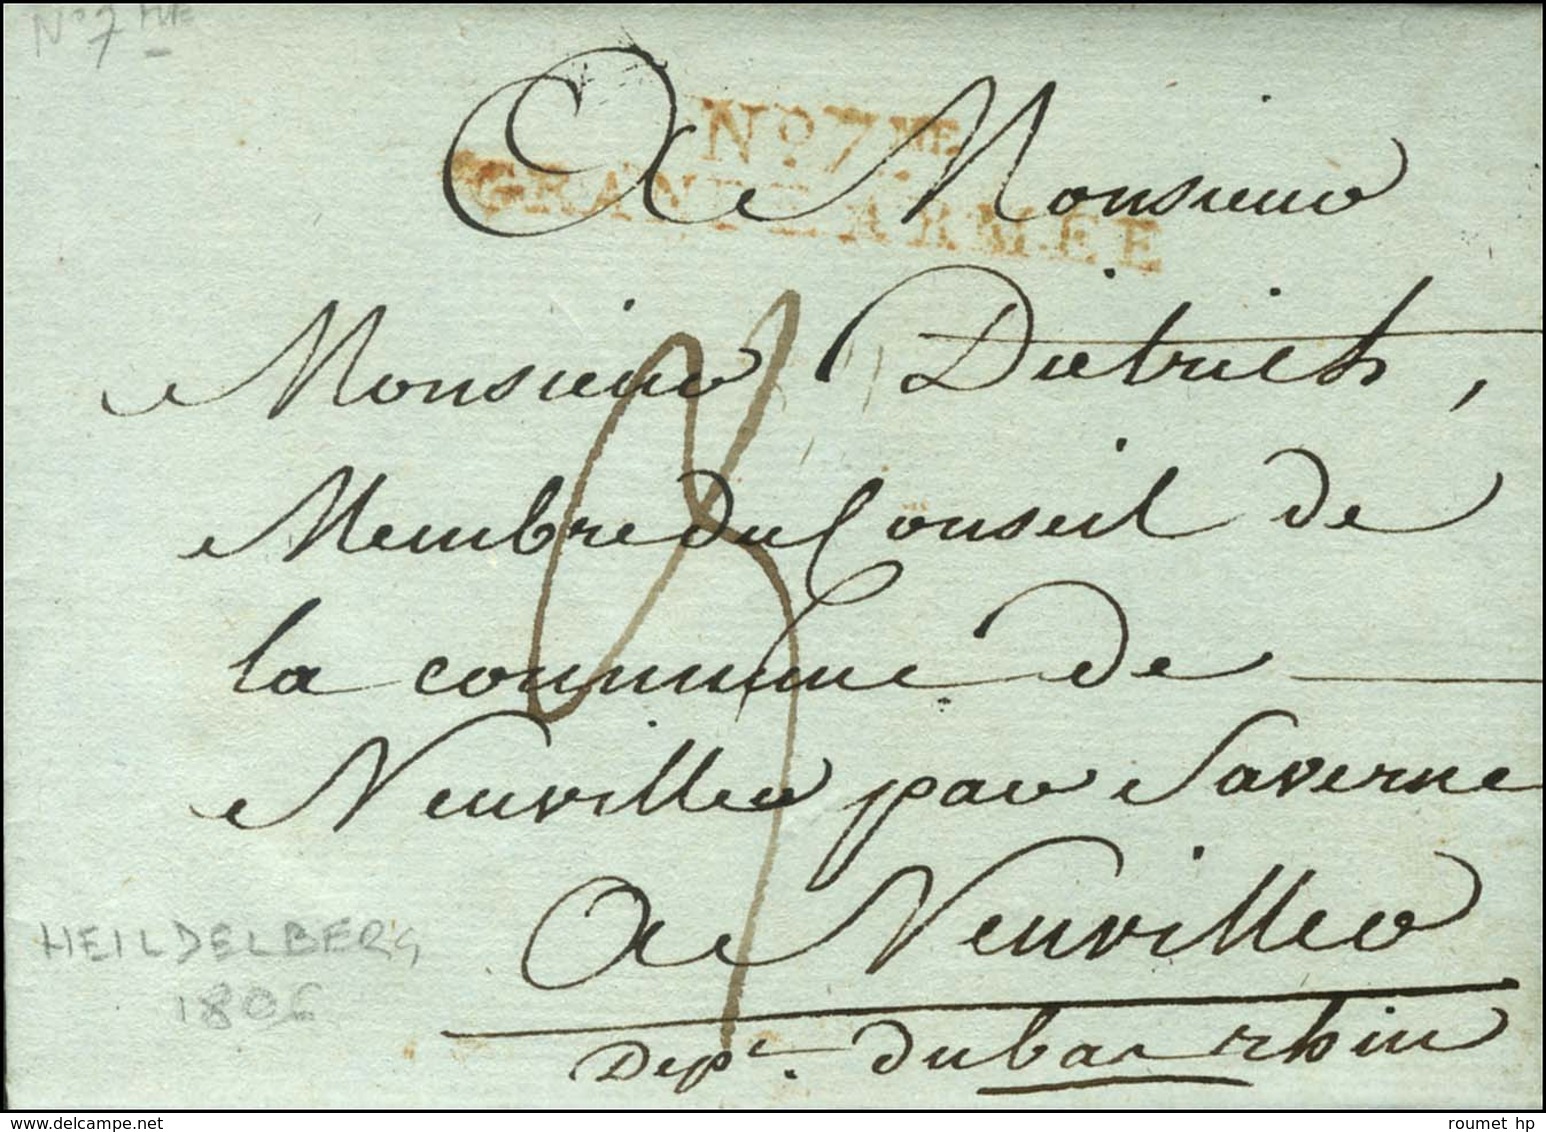 No 7me
No 7me
GRANDE ARMÉE
A Monsieur
Monsieur Dietrich,
Membre du Conseil de
la commune de
Neuviller par Saverne
A Neuviller
Dept. du bas rhin
HEILDELBERG
1806
roumet hp
roumet hp